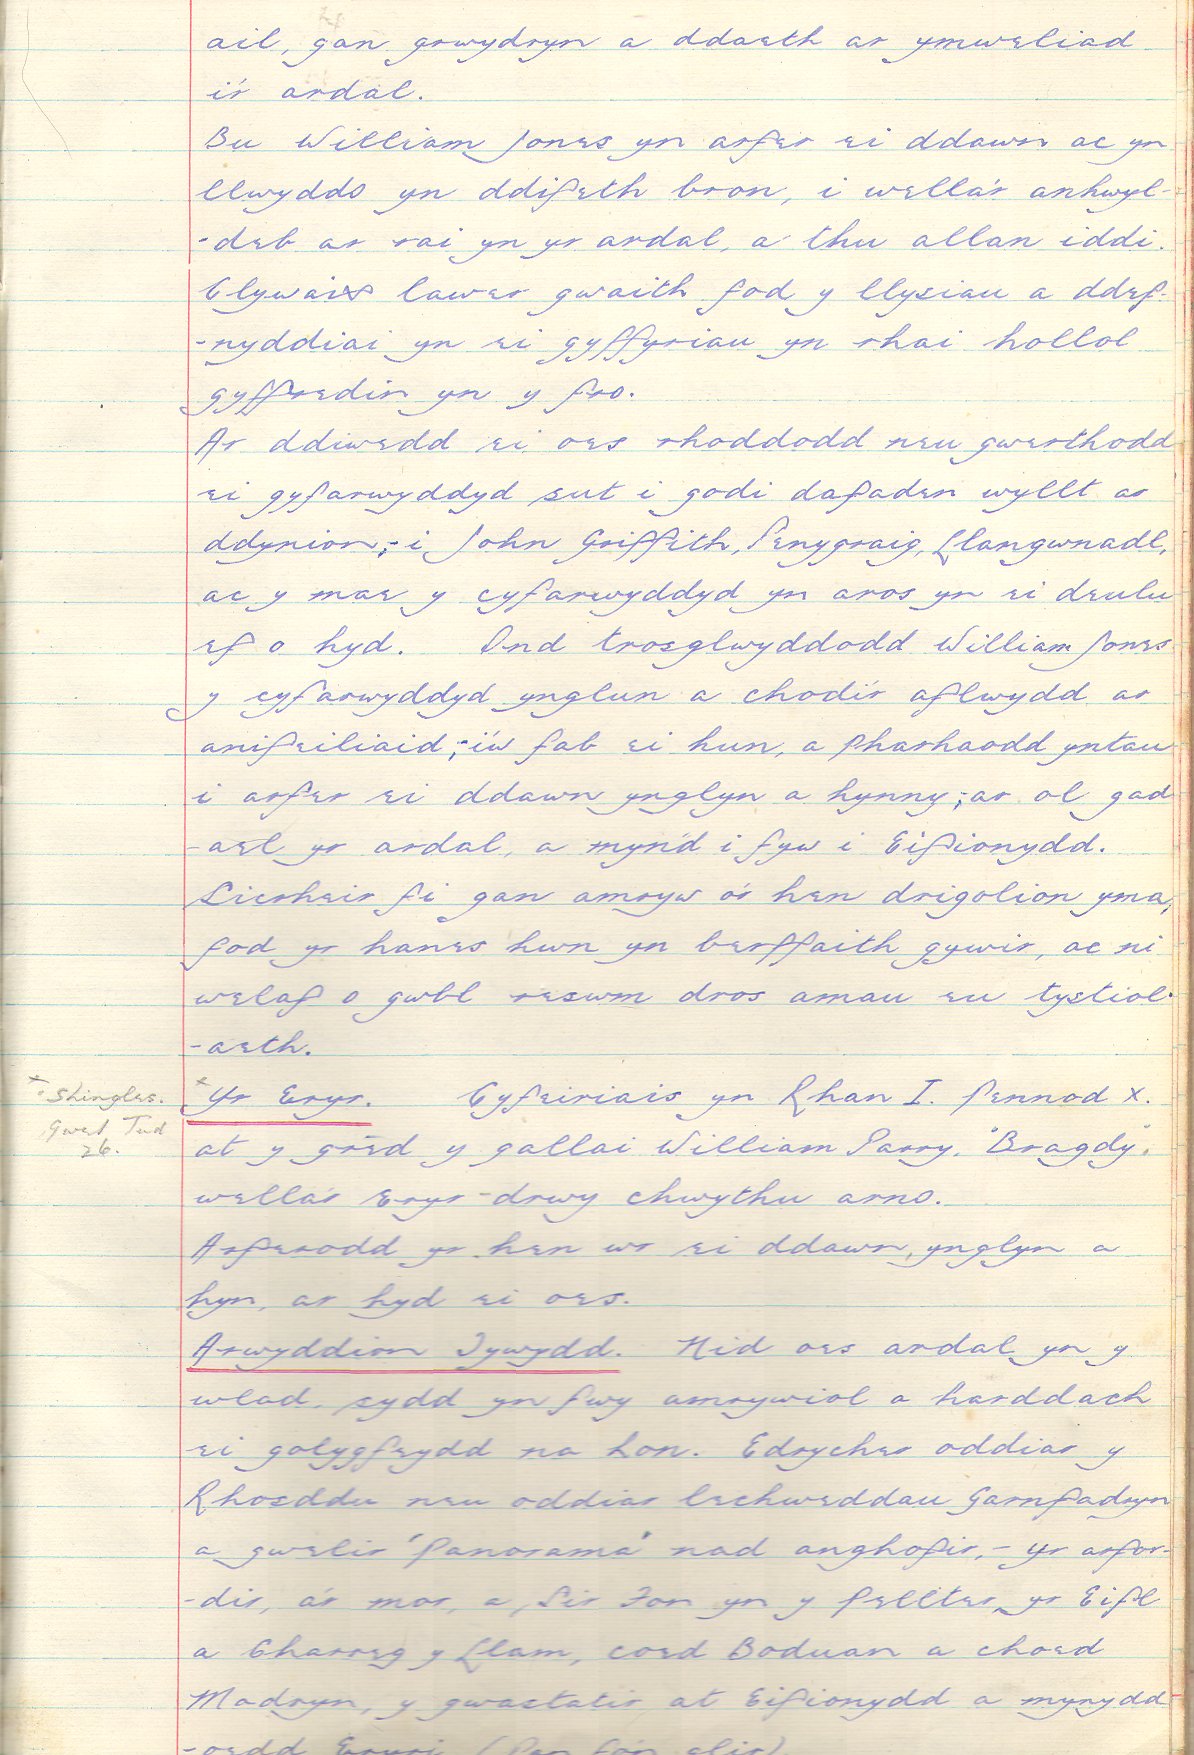 ail, gan grwydryn a ddaeth ar ymweliad
i'r ardal.
Bu William Jones yn arfer ei ddawn ac yn
llwyddo yn ddifeth bron, i wella'r anhwyl-
-deb ar rai yn yr ardal, a thu allan iddi.
Clywais lawer gwaith fod y llysiau a ddef-
-nyddiai yn ei gyffyriau yn rhai hollol
gyffredin yn y fro.
Ar ddiwedd ei oes rhoddodd neu gwerthodd
ei gyfarwyddyd sut i godi dafaden wyllt ar
ddynion,- i John Griffith, Penygraig, Llangwnadl,
ac y mae y cyfarwyddyd yn aros yn ei deulu
ef o hyd. Ond trosglwyddodd William Jones
y cyfarwyddyd ynglun a chodi'r aflwydd ar
anifeiliaid,- i'w fab ei hun, a pharhaodd yntau
i arfer ei ddawn ynglyn a hynny,- ar ol gad
-ael yr ardal, a mynd i fyw i Eifionydd.
Sicrheir fi gan amryw o'r hen drigolion yma,
fod yr hanes hwn yn berffaith gywir, ac ni
welaf o gwbl reswm dros amau eu tystiol-
-aeth.
x Shingles.
Gwel Tud
26.
x Yr Eryr. Cyfeiriais yn Rhan I. Pennod X.
at y grêd y gallai William Parry, "Bragdy",
wella'r Eryr - drwy chwythu arno.
Arferodd yr hen wr ei ddawn, ynglyn a
hyn, ar hyd ei oes.
Arwyddion Tywydd. Nid oes ardal yn y
wlad, sydd yn fwy amrywiol a harddach
ei golygfeydd na hon. Edrycher oddiar y
Rhosddu neu oddiar lechweddau Garnfadryn
a gwelir 'panorama' nad anghofir,- Yr arfor-
-dir, a'r mor, a Sir Fon yn y pellter, yr Eifl
a Charreg y Llam, coed Boduan a choed
Madryn, y gwastatir at Eifionydd a mynydd
-oedd Eryri (Pen fo'n glir)